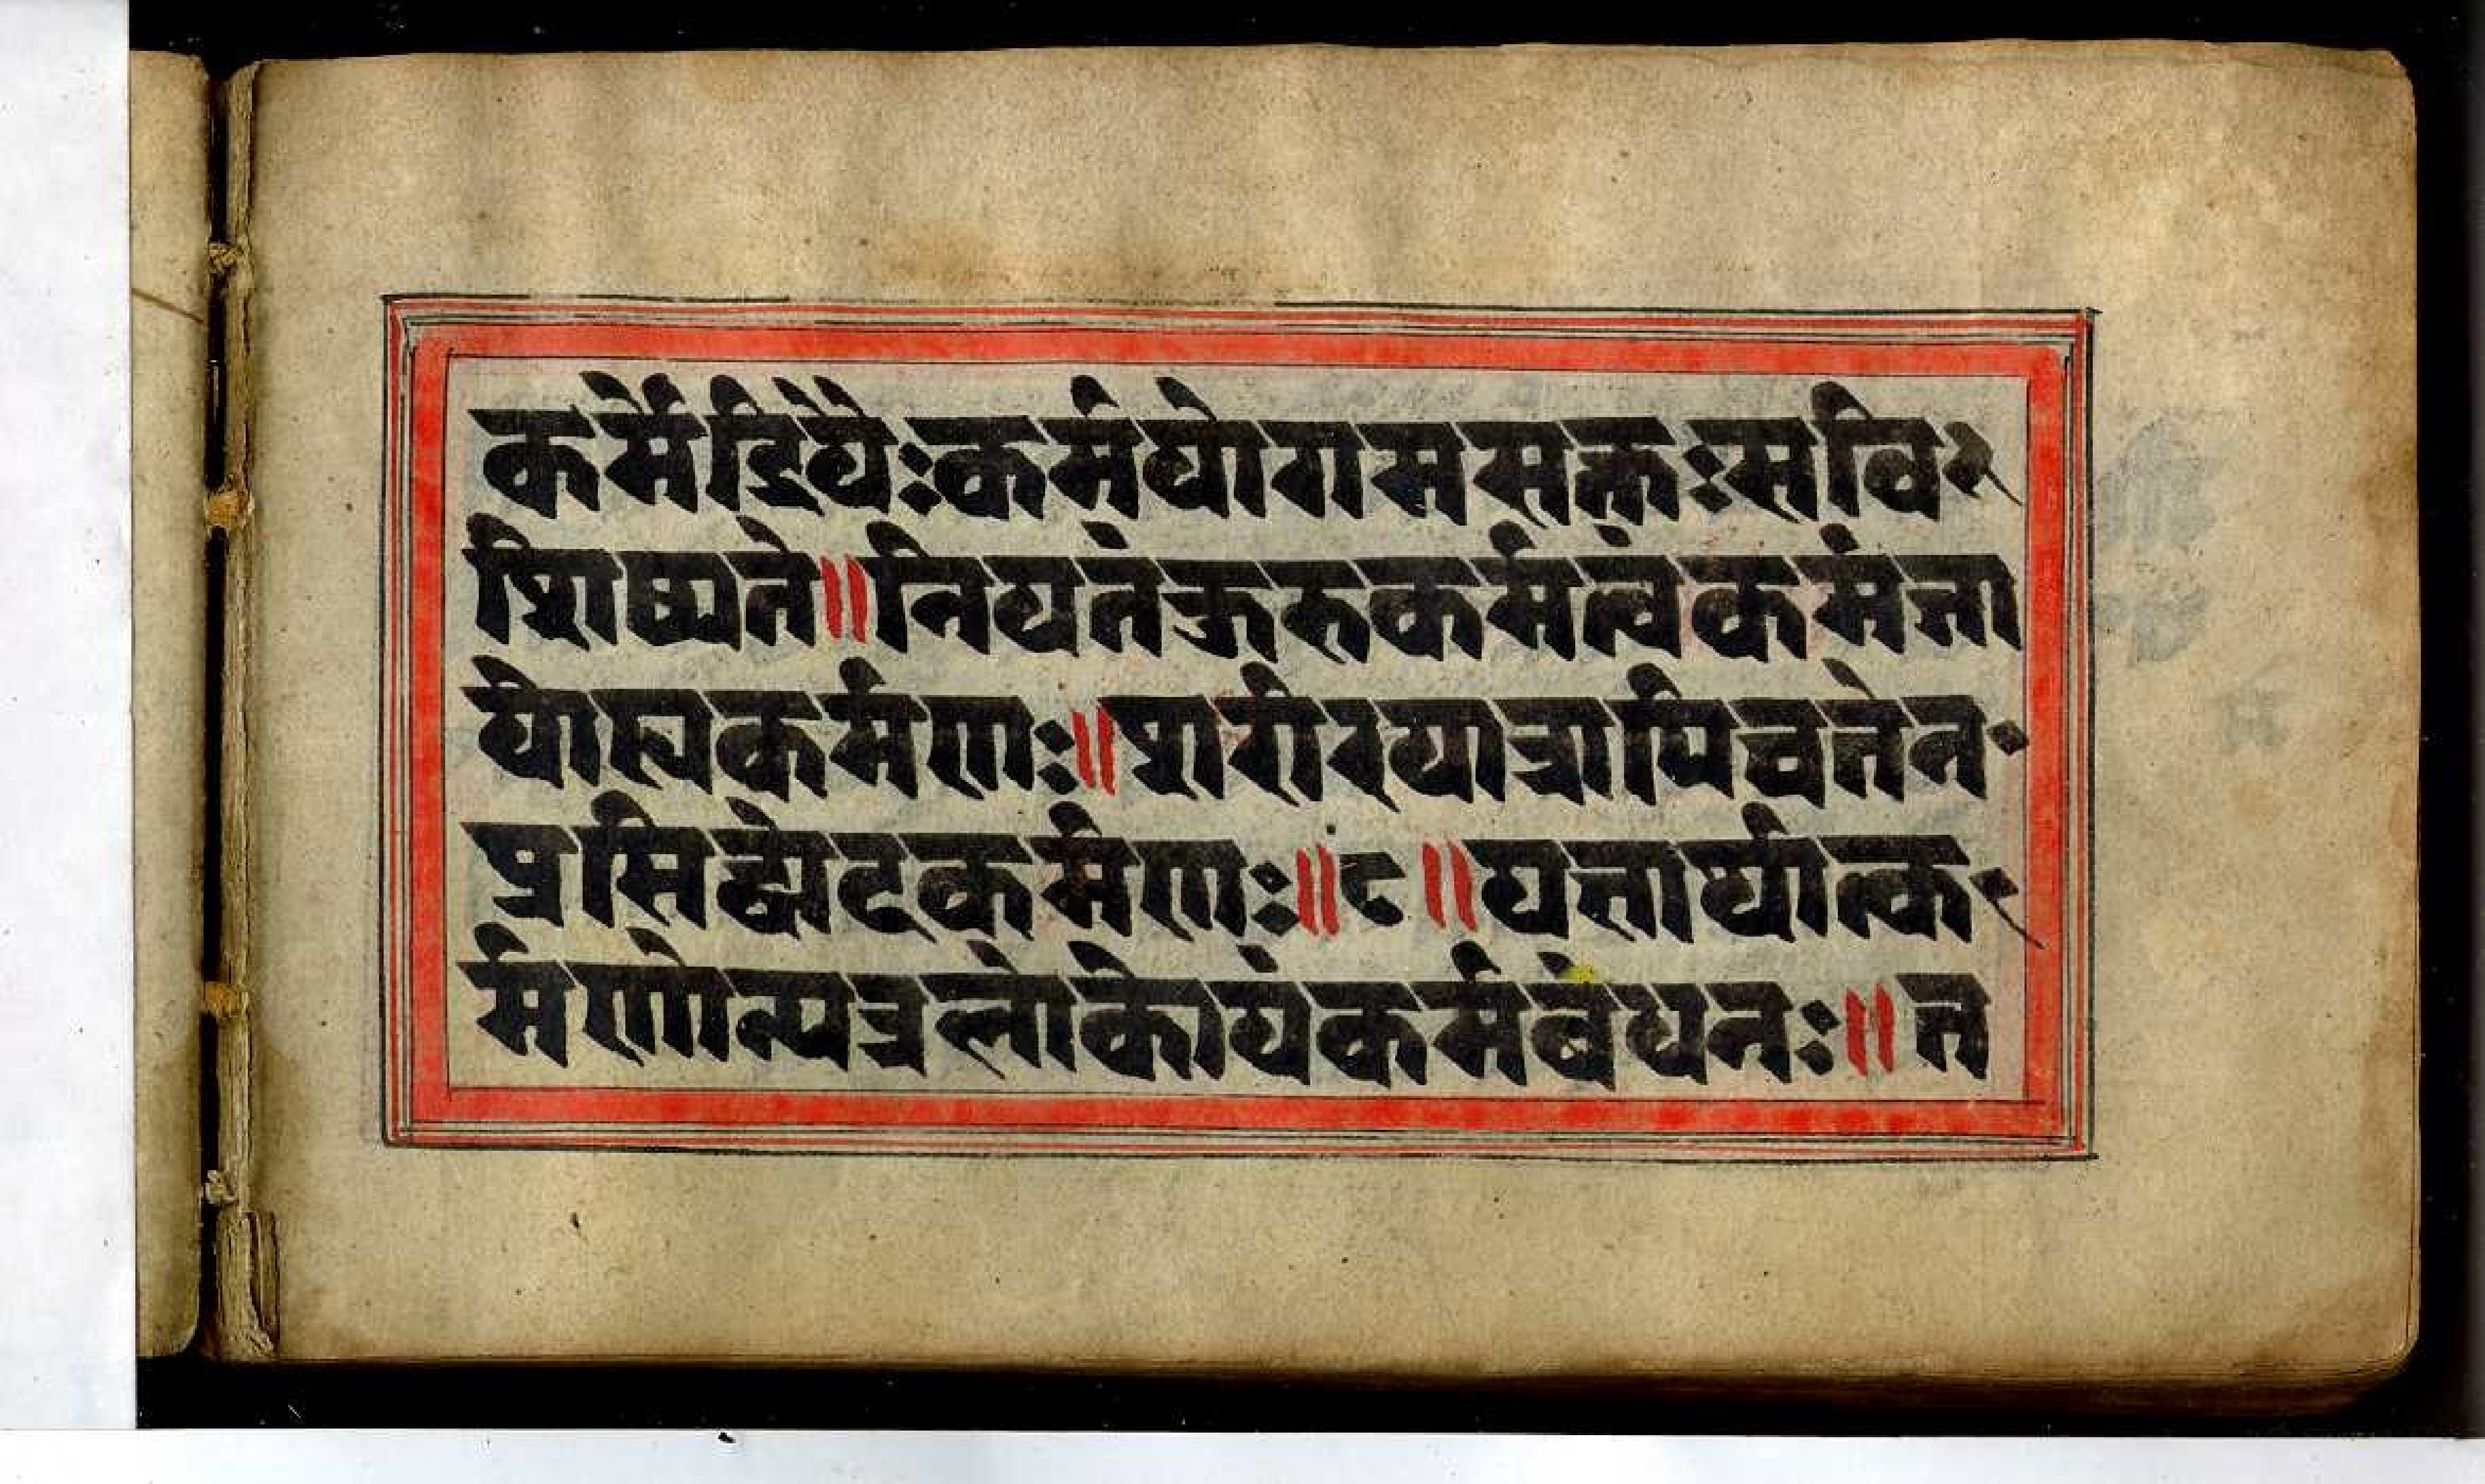 कर्मेंद्रियैःकर्मयोगमसक्तःसवि
शिष्यतेनियतंकुरुकर्मत्वंकर्मज्या
योह्यकर्मणःशरीरयात्रापिचतेन
प्रसिद्ध्येदकर्मणः॥८॥यज्ञार्थात्क
र्मणोन्यत्रलोकोयंकर्मबंधनः॥त